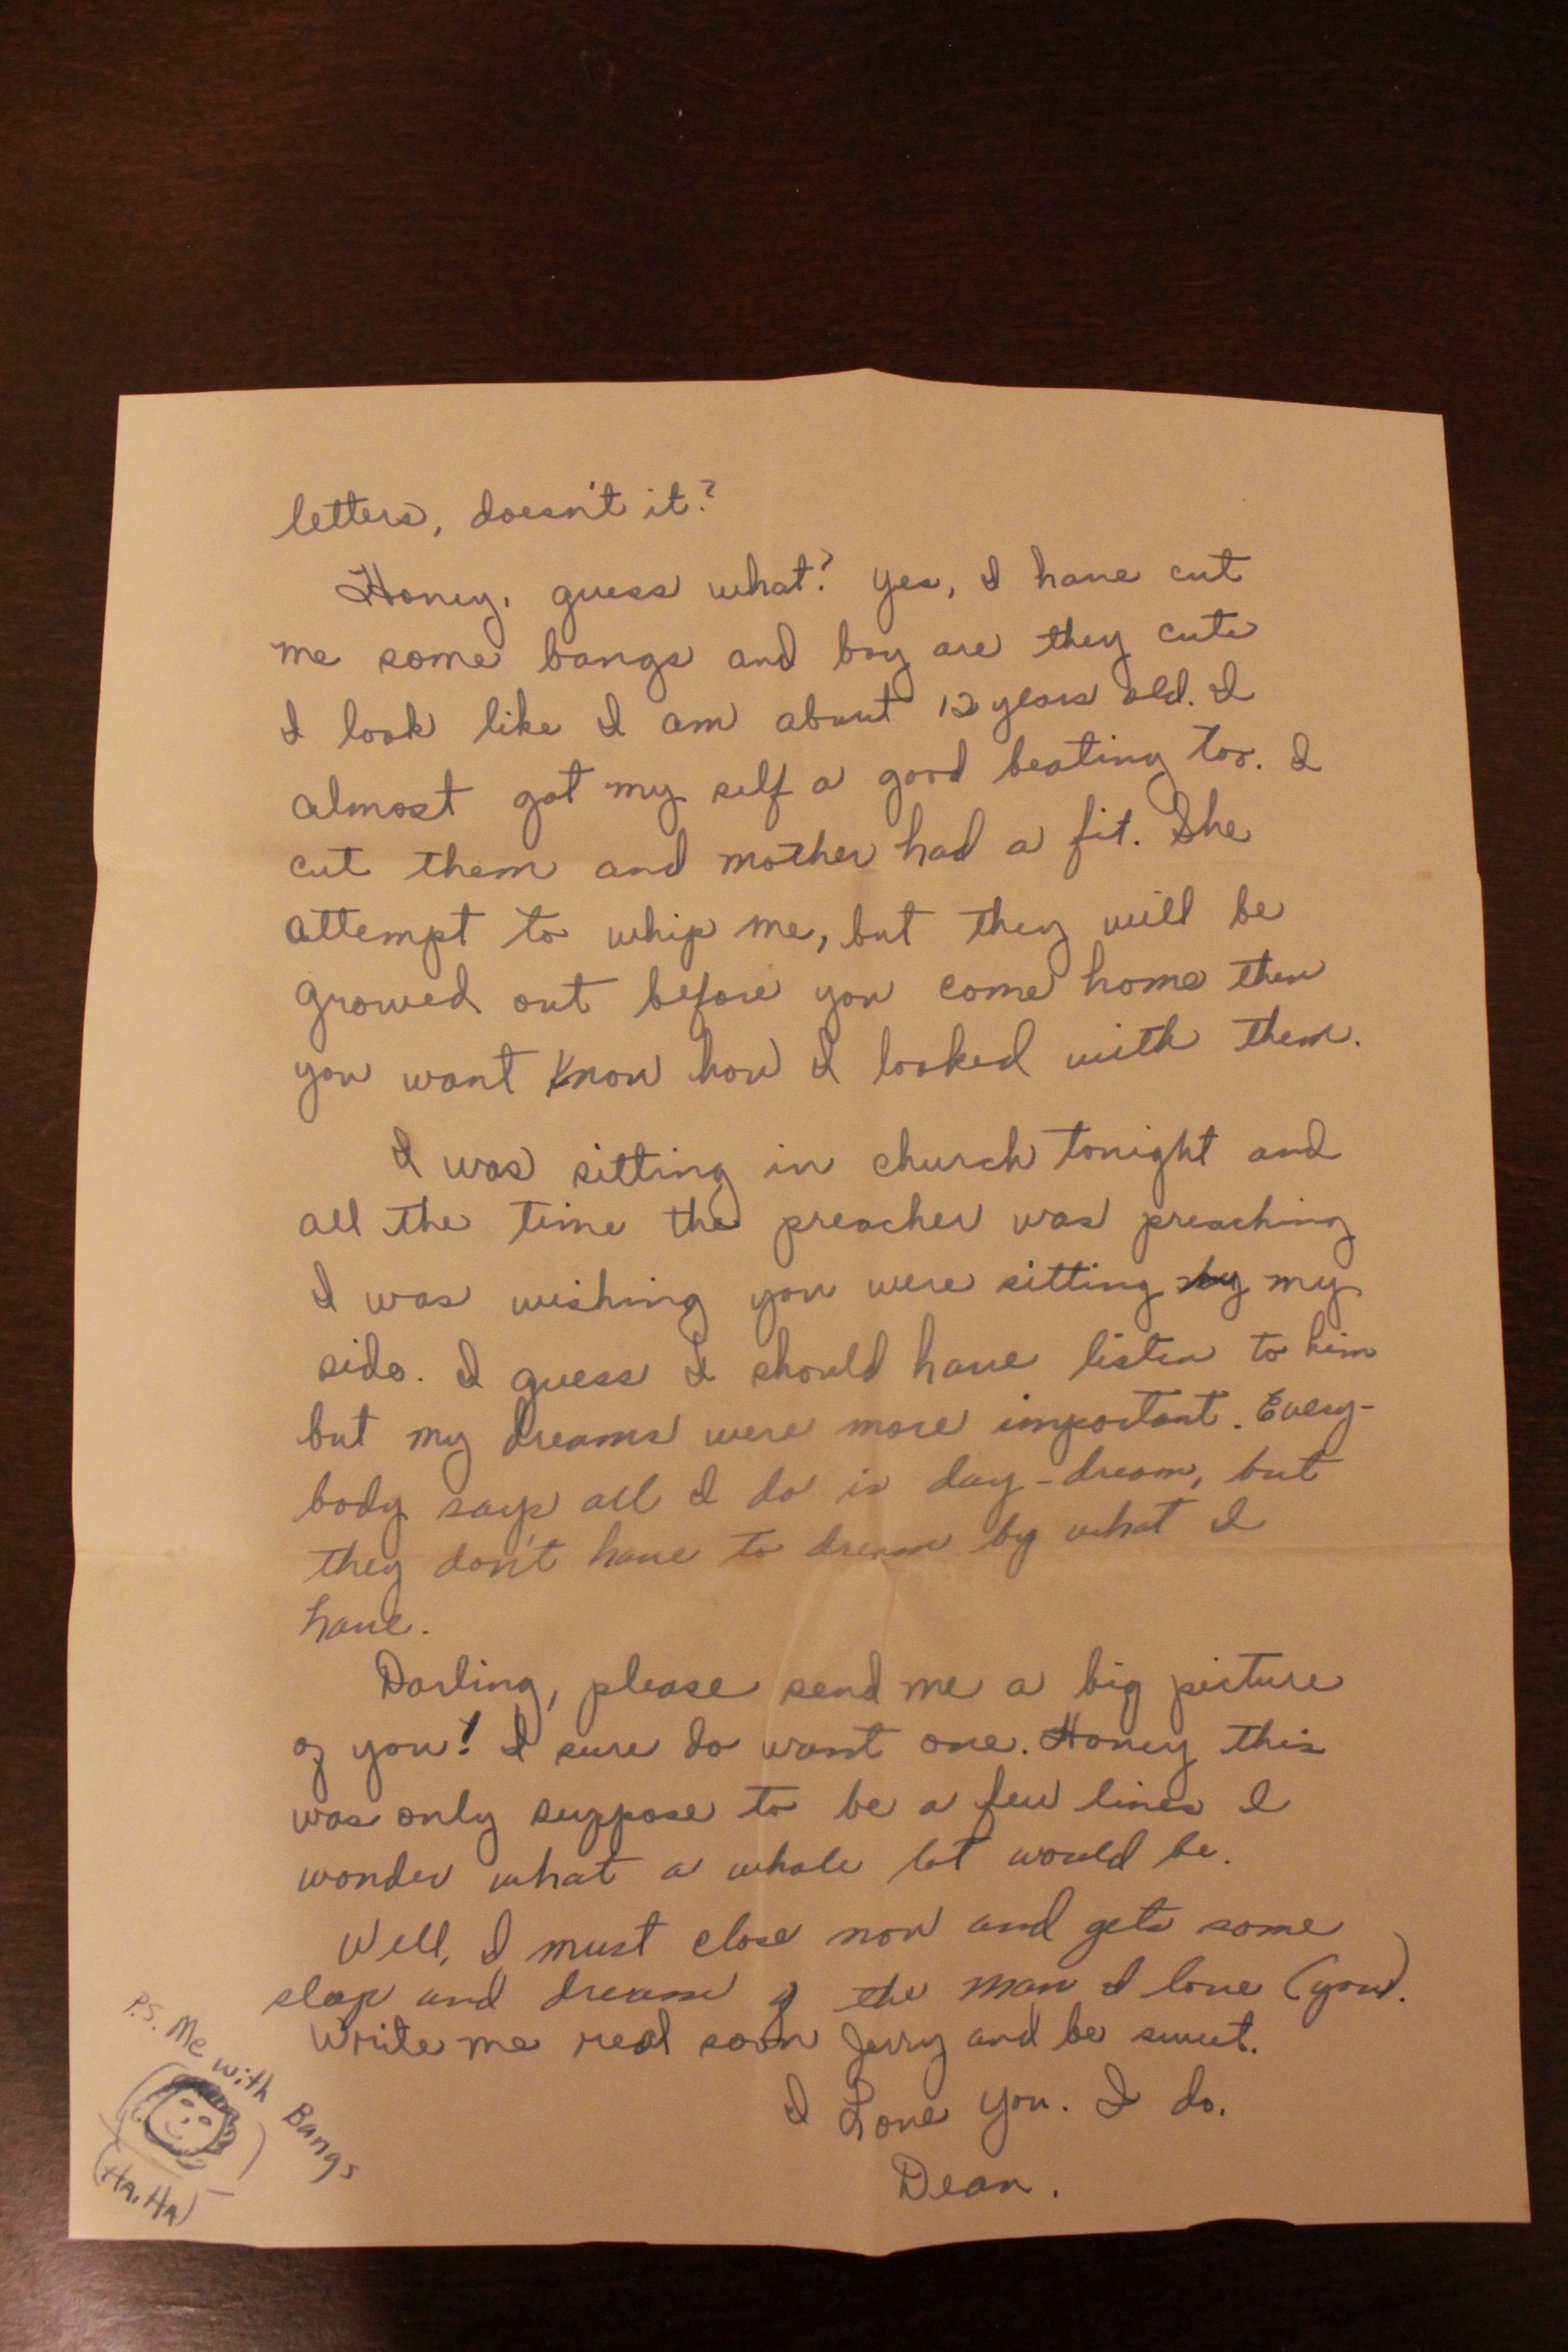 letters, doesn't it?
Honey, guess what? Yes, I have cut
me some bangs and boy are they cute
I look like I am about 12 years old. I
almost got my self a good beating too. I
cut them and mother had a fit. She
attempt to whip me, but they will be
growed out before you come home then
you want know how I looked with them.
I was sitting in church tonight and
all the time the preacher was preaching
I was wishing you were sitting by my
side. I guess I should have listen to him
but my dreams were more important. Every-
body says all I do is day-dream, but
they don't have to dream by what I
have.
Darling, please send me a big picture
of you! I sure do want one. Honey this
was only suppose to be a few lines I
wonder what a whole lot would be.
Well, I must close now and gets some
sleep and dream of the man I love (you).
Write me real soon Jerry and be sweet.
I Love You. I do.
Dean.
P.S. Me with Bangs
(Ha, Ha)